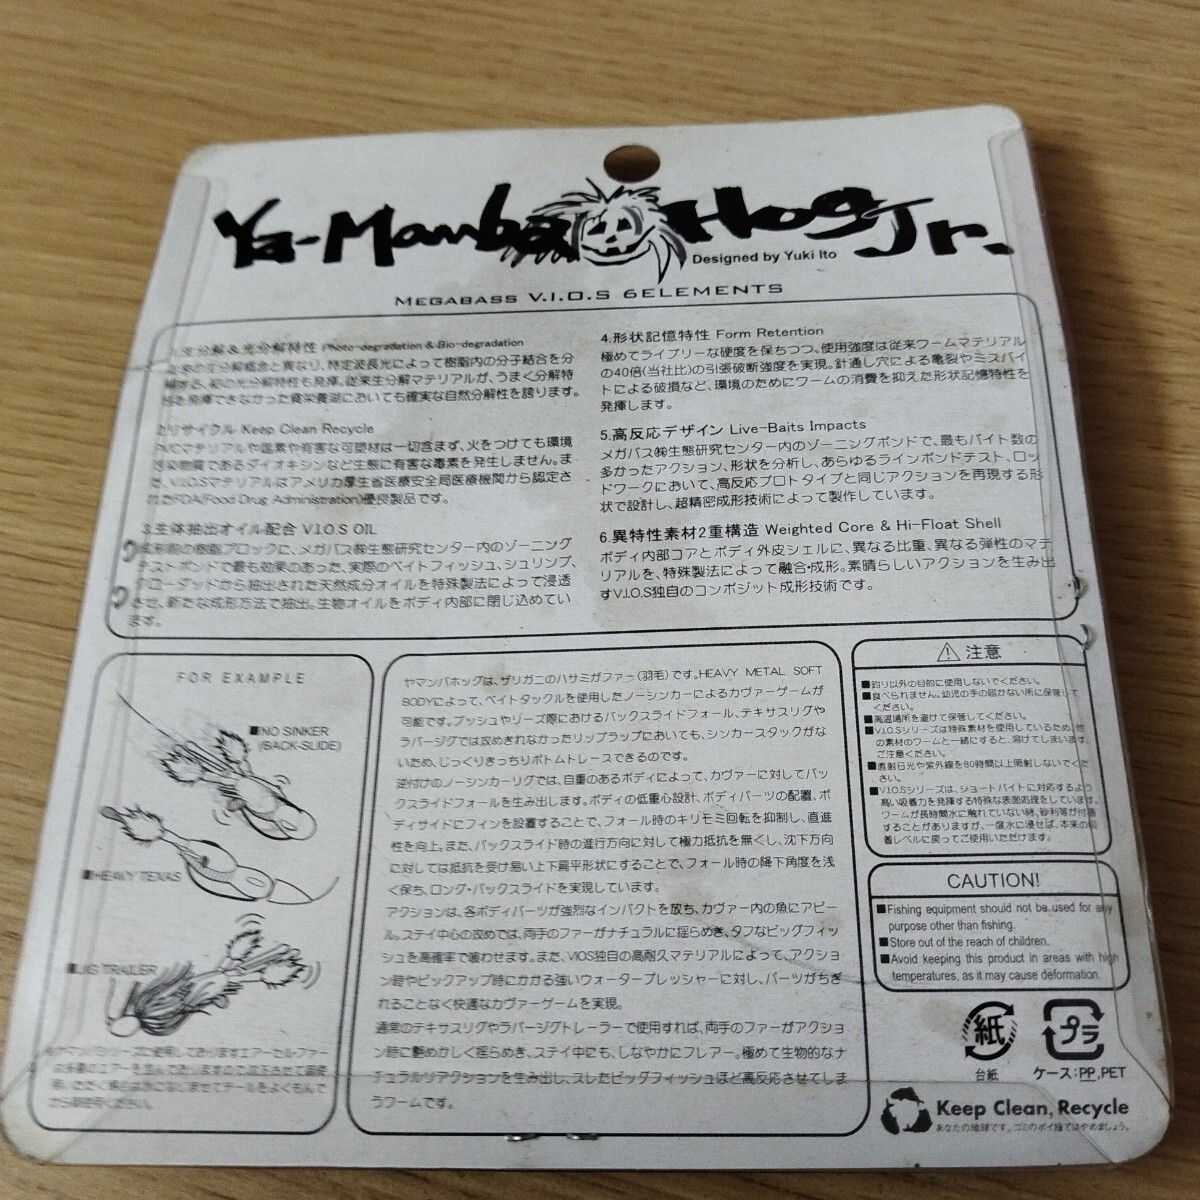 Ya-Mamba Hog Jr.
Designed by Yuki Ito
MEGABASS V.I.O.S 6ELEMENTS
1.生分解&光分解特性 Photo-degradation & Bio-degradation
従来の生分解概念と異なり、特定波長光によって樹脂内の分子結合を分
解する、初の光分解特性も発揮。従来生分解マテリアルが、うまく分解特
性を発揮できなかった貧栄養湖においても確実な自然分解性を誇ります。
2.リサイクル Keep Clean Recycle
PVCマテリアルや塩素や有害な可塑材は一切含まず、火をつけても環境
汚染物質であるダイオキシンなど生態に有害な毒素を発生しません。ま
た、V.I.O.Sマテリアルはアメリカ厚生省医療安全局医療機関から認定さ
れたFDA(Food Drug Administration)優良製品です。
3.生体抽出オイル配合 V.I.O.S OIL
成形前の樹脂ブロックに、メガバス㈱生態研究センター内のゾーニング
テストポンドで最も効果のあった、実際のベイトフィッシュ、シュリンプ、
クローダッドから抽出された天然成分オイルを特殊製法によって浸透
させ、新たな成形方法で抽出。生物オイルをボディ内部に閉じ込めてい
ます。
4.形状記憶特性 Form Retention
極めてライブリーな硬度を保ちつつ、使用強度は従来ワームマテリアル
の40倍(当社比)の引張破断強度を実現。針通し穴による亀裂やミスバイ
トによる破損など、環境のためにワームの消費を抑えた形状記憶特性を
発揮します。
5.高反応デザイン Live-Baits Impacts
メガバス㈱生態研究センター内のゾーニングポンドで、最もバイト数の
多かったアクション、形状を分析し、あらゆるラインポンドテスト、ロッ
ドワークにおいて、高反応プロトタイプと同じアクションを再現する形
状で設計し、超精密成形技術によって製作しています。
6.異特性素材2重構造 Weighted Core & Hi-Float Shell
ボディ内部コアとボディ外皮シェルに、異なる比重、異なる弾性のマテ
リアルを、特殊製法によって融合・成形。素晴らしいアクションを生み出
すV.I.O.S独自のコンポジット成形技術です。
FOR EXAMPLE
■NO SINKER
(BACK-SLIDE)
■HEAVY TEXAS
■JIG TRAILER
※ヤマンバシリーズに使用しておりますエアーセルファー
は多量のエアーを含んでおりますので沈下させて御使
用いただく場合は水になじませてテールをよくもんで
から御使用ください。
ヤマンバホッグは、ザリガニのハサミがファー(羽毛)です。HEAVY METAL SOFT
BODYによって、ベイトタックルを使用したノーシンカーによるカヴァーゲームが
可能です。ブッシュやリーズ際におけるバックスライドフォール、テキサスリグや
ラバージグでは攻めきれなかったリップラップにおいても、シンカースタックがな
いため、じっくりきっちりボトムトレースできるのです。
逆付けのノーシンカーリグでは、自重のあるボディによって、カヴァーに対してバッ
クスライドフォールを生み出します。ボディの低重心設計、ボディパーツの配置、ボ
ディサイドにフィンを設置することで、フォール時のキリモミ回転を抑制し、直進
性を向上。また、バックスライド時の進行方向に対して極力抵抗を無くし、沈下方向
に対しては抵抗を受け易い上下扁平形状にすることで、フォール時の降下角度を浅
く保ち、ロング・バックスライドを実現しています。
アクションは、各ボディパーツが強烈なインパクトを放ち、カヴァー内の魚にアピー
ル。ステイ中心の攻めでは、両手のファーがナチュラルに揺らめき、タフなビッグフィッ
シュを高確率で喰わせます。また、VIOS独自の高耐久マテリアルによって、アクショ
ン時やピックアップ時にかかる強いウォータープレッシャーに対し、パーツがちぎ
れることなく快適なカヴァーゲームを実現。
通常のテキサスリグやラバージグトレーラーで使用すれば、両手のファーがアクショ
ン時に艶めかしく揺らめき、ステイ中にも、しなやかにフレアー。極めて生物的なナ
チュラルリアクションを生み出し、スレたビッグフィッシュほど高反応させてしま
うワームです。
⚠注意
■釣り以外の目的に使用しないでください。
■食べられません。幼児の手の届かない所に保管して
ください。
■高温場所を避けて保管してください。
■V.I.O.Sシリーズは特殊素材を使用しているため、他
の素材のワームと一緒にすると、溶けてしまいます。
ご注意ください。
■直射日光や紫外線を80時間以上照射しないでくだ
さい。
■V.I.O.Sシリーズは、ショートバイトに対応するよう
高い吸着力を発揮する特殊な表面処理をしています。
ワームが長時間水に触れていない時、砂利等が付着
することがありますが、一度水に浸せば、本来の吸
着レベルに戻ってご使用いただけます。
CAUTION!
■Fishing equipment should not be used for any
purpose other than fishing.
■Store out of the reach of children.
■Avoid keeping this product in areas with high
temperatures, as it may cause deformation.
紙
台紙
プラ
ケース:PP,PET
Keep Clean, Recycle
あなたの地球です。ゴミのポイ捨てはやめましょう。